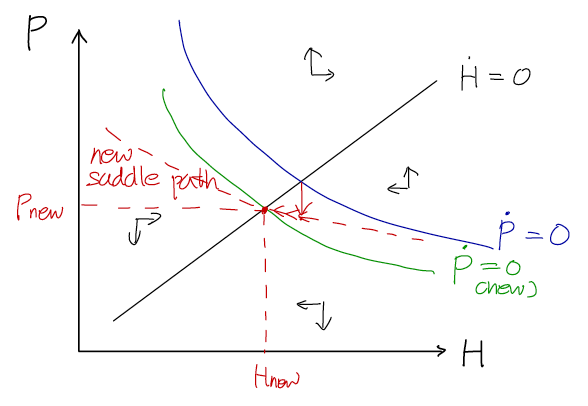 P
Ḣ = 0
new
saddle path
Pnew
Ṗ = 0
Ṗ = 0
(new)
H
Hnew